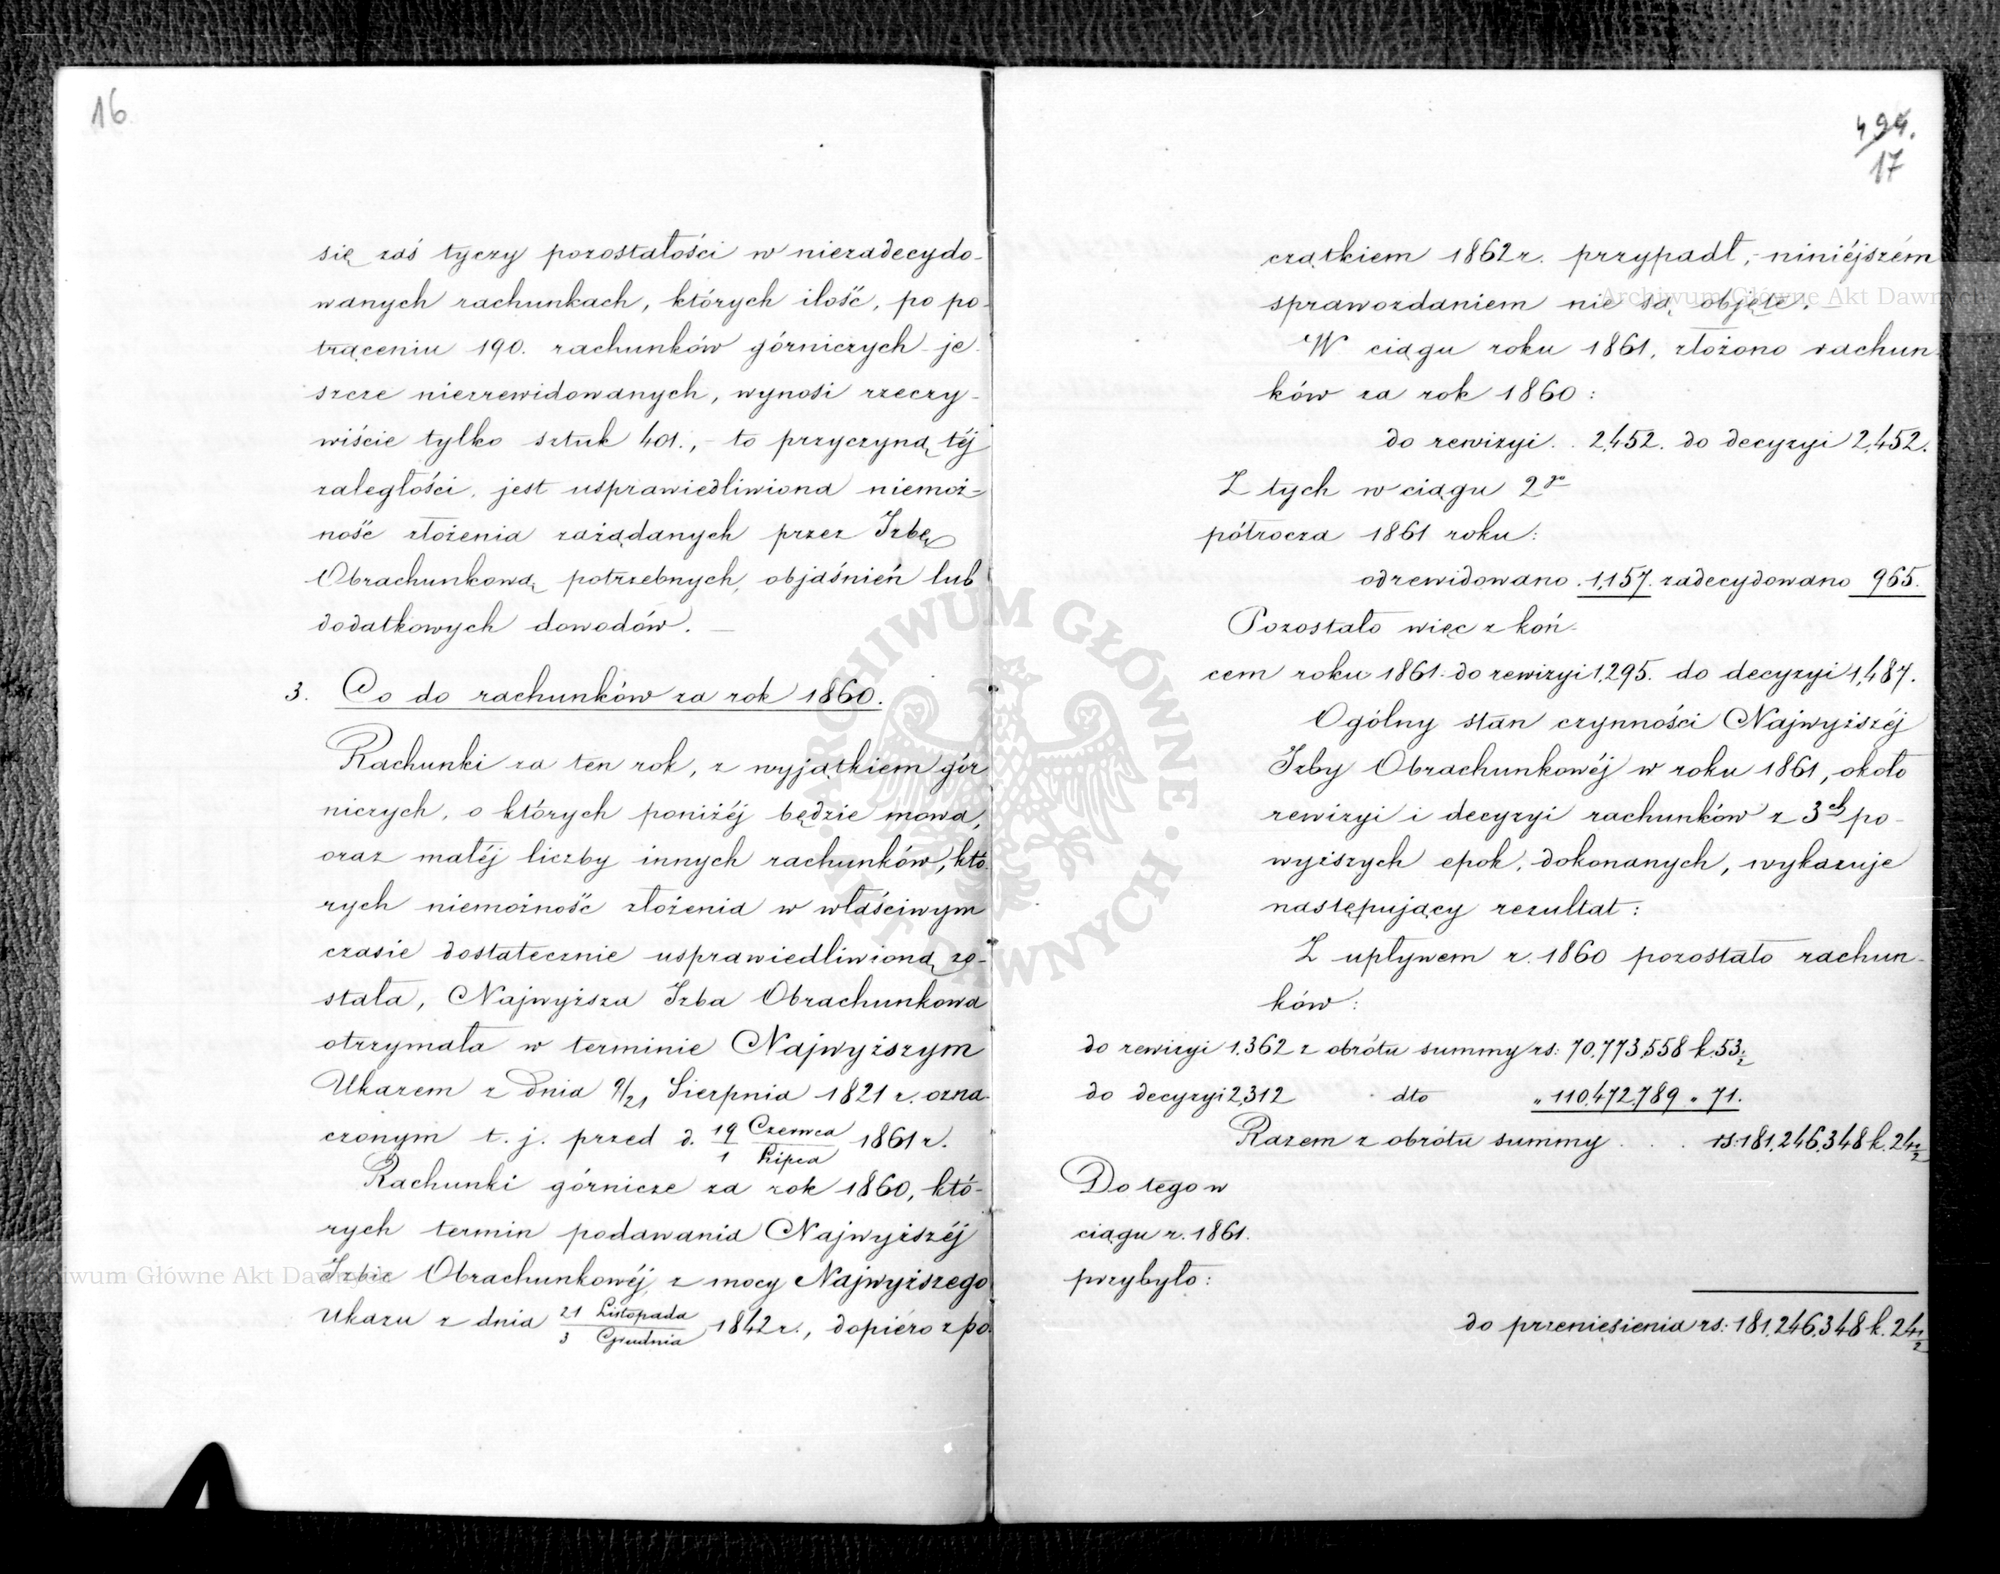 16
się zaś tyczy pozostałości w niezadecydo-
wanych rachunkach, których ilość, po po-
trąceniu 190. rachunków górniczych je-
szcze niezrewidowanych, wynosi rzeczy-
wiście tylko sztuk 401., - to przyczyną téj
zaległości, jest usprawiedliwiona niemoż-
ność złożenia zażądanych przez Izbę
Obrachunkową potrzebnych, objaśnień lub
dodatkowych dowodów. —
3. Co do rachunków za rok 1860.
Rachunki za ten rok, z wyjątkiem gór
niczych, o których poniżéj będzie mowa,
oraz małéj liczby innych rachunków, któ-
rych niemożność złożenia w właściwym
czasie dostatecznie usprawiedliwioną zo-
stała, Najwyższa Izba Obrachunkowa
otrzymała w terminie Najwyższym
Ukazem z dnia 9/21 Sierpnia 1821 r. ozna-
czonym t. j. przed d. 19 Czerwca / 1 Lipca 1861 r.
Rachunki górnicze za rok 1860, któ-
rych termin podawania Najwyższéj
Izbie Obrachunkowéj, z mocy Najwyższego
Ukazu z dnia 21 Listopada / 3 Grudnia 1842 r., dopiéro z po-
494.
17
czątkiem 1862 r. przypadł, - niniéjszém
sprawozdaniem nie są objęte. —
W ciągu roku 1861, złożono rachun-
ków za rok 1860:
do rewizyi . . 2,452. do decyzyi 2,452.
Z tych w ciągu 2go
półrocza 1861 roku:
odrewidowano . 1,157. zadecydowano 965.
Pozostało więc z koń-
cem roku 1861. do rewizyi 1,295. do decyzyi 1,487.
Ogólny stan czynności Najwyższéj
Izby Obrachunkowéj w roku 1861, około
rewizyi i decyzyi rachunków z 3ch po-
wyższych epok, dokonanych, wykazuje
następujący rezultat:
Z upływem r. 1860 pozostało rachun-
ków:
do rewizyi 1,362 z obrótu summy rs: 70,773,558 k. 53 1/2
do decyzyi 2,312 dto " 110,472,789 " 71.
Razem z obrótu summy . . . rs: 181,246,348 k. 24 1/2
Do tego w
ciągu r. 1861.
przybyło:
do przeniesienia rs: 181,246,348 k. 24 1/2
Archiwum Główne Akt Dawnych
ARCHIWUM GŁÓWNE AKT DAWNYCH
Archiwum Główne Akt Dawnych